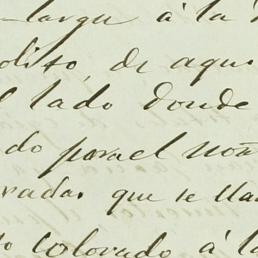 larga à la
olito, de aque
l lado donde
do para el
radas que se lla
to colorado à la